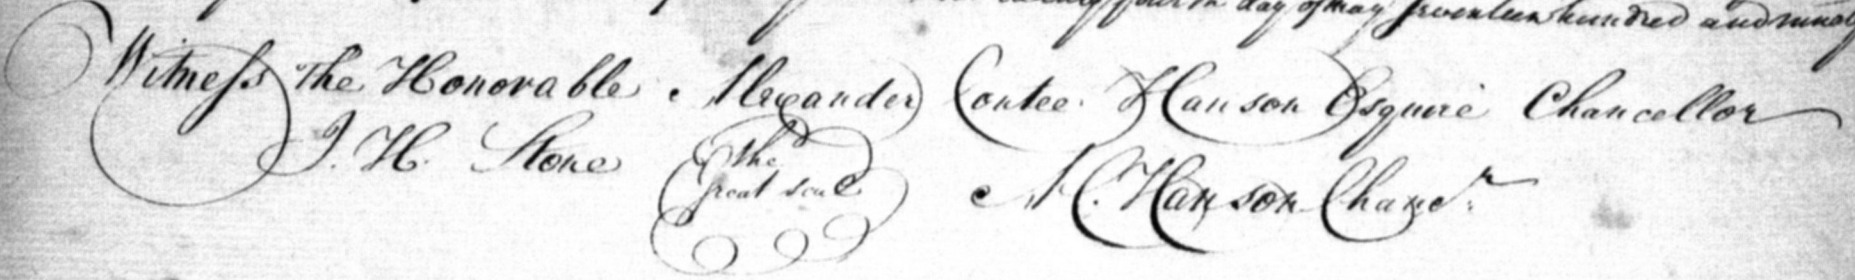 twenty fourth day of may seventeen hundred and ninety
Witness The Honorable Alexander Contee Hanson Esquire Chancellor
J. H. Stone The great seal A. C. Hanson Chanr.